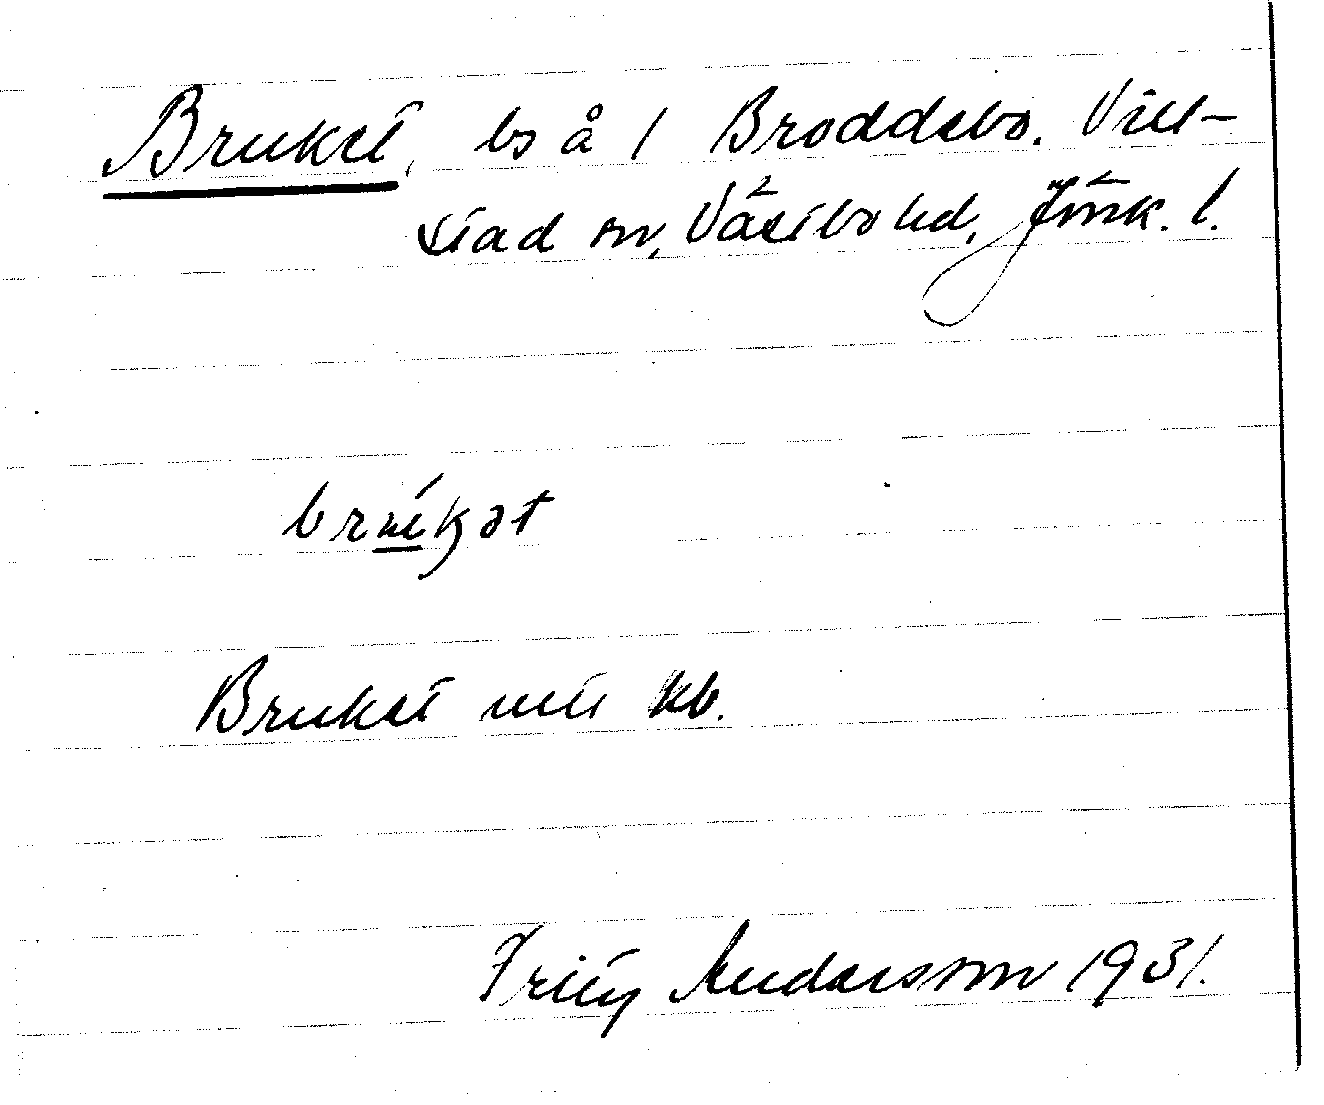 Bruket, bs å 1 Broddebo. Vill-
stad sn, Västbo hd, Jönk. l.
brúkət
Bruket utt kb.
Fritz Andersson 1931.